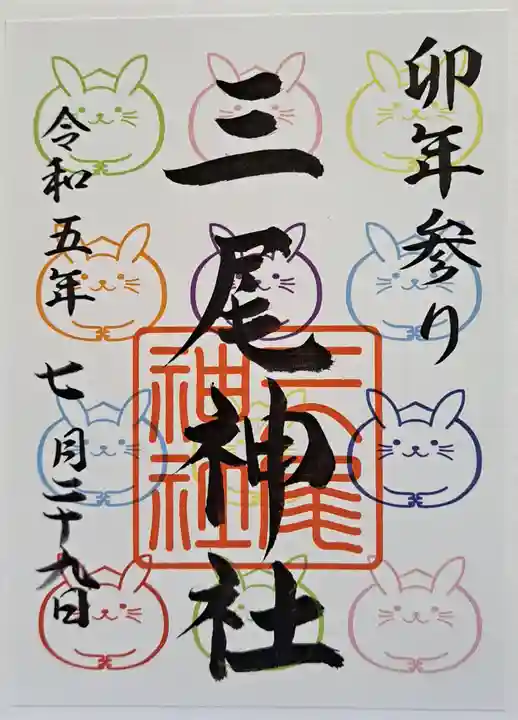 卯年参り
三尾神社
三尾神社
令和五年 七月二十九日